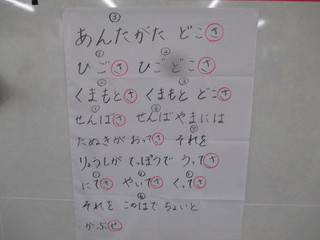 ③
あんたがた どこさ
① ②
ひごさ ひごどこさ
② ③
くまもとさ くまもと どこさ
せんばさ せんばやまには
たぬきがおってさ それを
りょうしが てっぽうで うってさ
にてさ やいてさ くってさ
それを このはで ちょいと
かぶせ